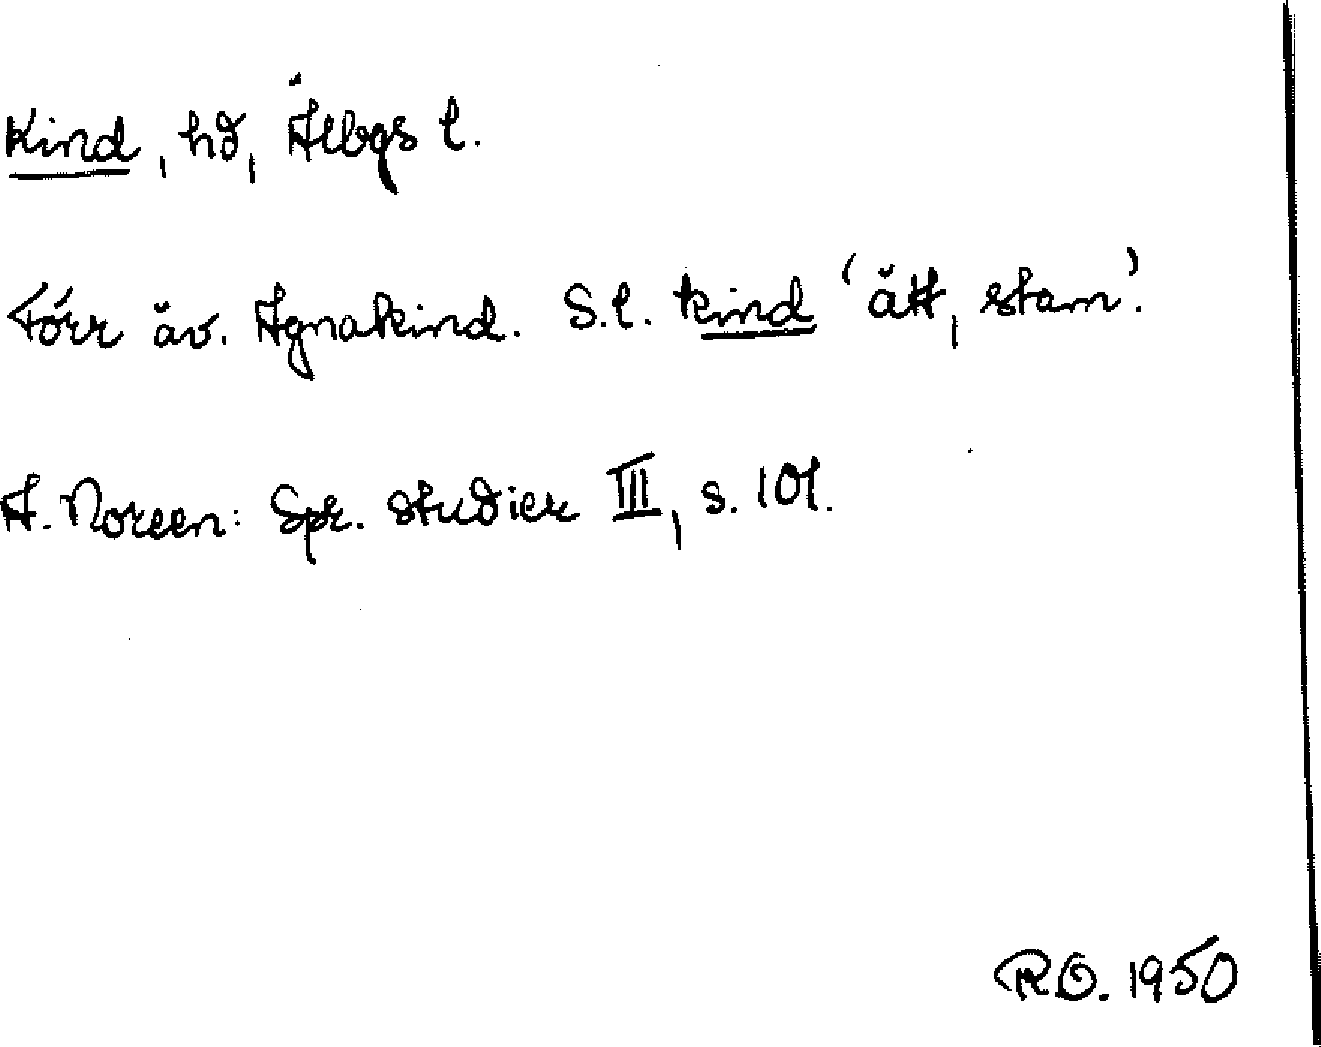 Kind, hd, Älvbgs l.
Förr äv. Agnakind. S.l. kind 'ätt, stam'.
A. Noreen: Spr. studier III, s. 101.
R.O. 1950